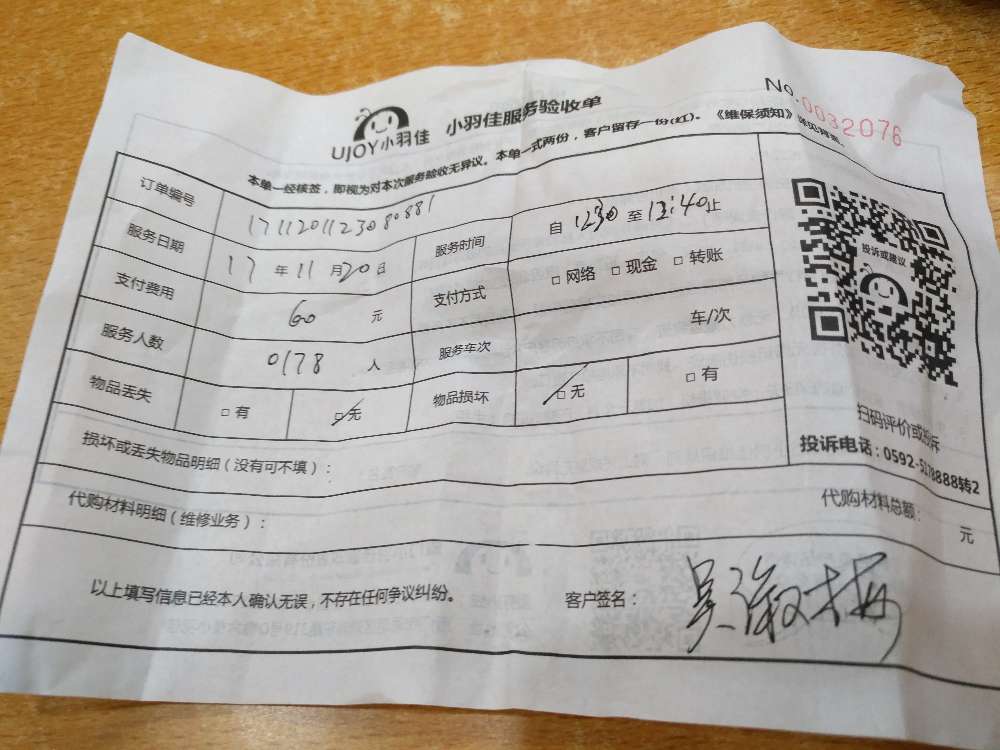 UJOY小羽佳 小羽佳服务验收单 No.0032076
本单一经核签，即视为对本次服务验收无异议。本单一式两份，客户留存一份(红)。《维保须知》
订单编号 1711201123080881
服务日期 17年11月20日 服务时间 自12:30至12:40止
支付费用 60元 支付方式 □网络 □现金 □转账
服务人数 0178人 服务车次 车/次
物品丢失 □有 □无 物品损坏 □无 □有
投诉或建议
扫码评价或投诉
投诉电话：0592-5178888转2
损坏或丢失物品明细（没有可不填）：
代购材料明细（维修业务）： 代购材料总额： 元
以上填写信息已经本人确认无误，不存在任何争议纠纷。 客户签名：